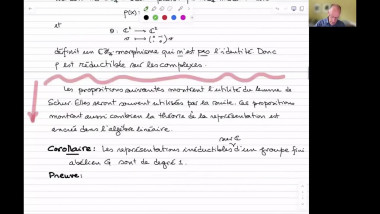 ρ(x):
et
Θ: ℂ² ⟶ ℂ²
définit un ℂℤ₂-morphisme qui n'est pas l'identité. Donc
ρ est réductible sur les complexes.
Les propositions suivantes montrent l'utilité du lemme de
Schur. Elles seront souvent utilisées par la suite. Ces propositions
montrent aussi combien la théorie de la représentation est
ancrée dans l'algèbre linéaire.
sur ℂ
Corollaire: Les représentations irréductibles d'un groupe fini
abélien G sont de degré 1.
Preuve: